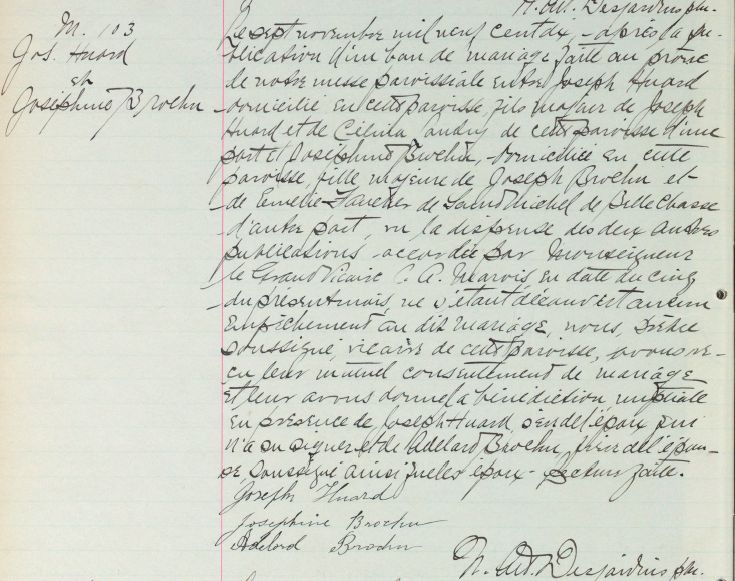 N. Ad. Desjardins ptre.
M. 103
Jos. Huard
et
Joséphine Brochu
Le sept novembre mil neuf cent dix, après la pu-
blication d'un ban de mariage faite au prône
de notre messe paroissiale entre Joseph Huard
domicilié en cette paroisse, fils majeur de Joseph
Huard et de Célina Audy de cette paroisse d'une
part et Joséphine Brochu, domiciliée en cette
paroisse, fille majeure de Joseph Brochu et
de Emélie de Saint Michel de Bellechasse
d'autre part, vu la dispense des deux autres
publications accordée par Monseigneur
le Grand Vicaire C. A. Marois en date du cinq
du présent mois, ne s'étant découvert aucun
empêchement au dit mariage, nous, prêtre
soussigné, vicaire de cette paroisse, avons re-
çu leur mutuel consentement de mariage
et leur avons donné la bénédiction nuptiale
en présence de Joseph Huard, père de l'époux qui
n'a su signer et de Adélard Brochu, frère de l'épou-
se, soussigné ainsi que les époux. Lecture faite.
Joseph Huard
Josephine Brochu
Adelard Brochu
N. Ad. Desjardins ptre.